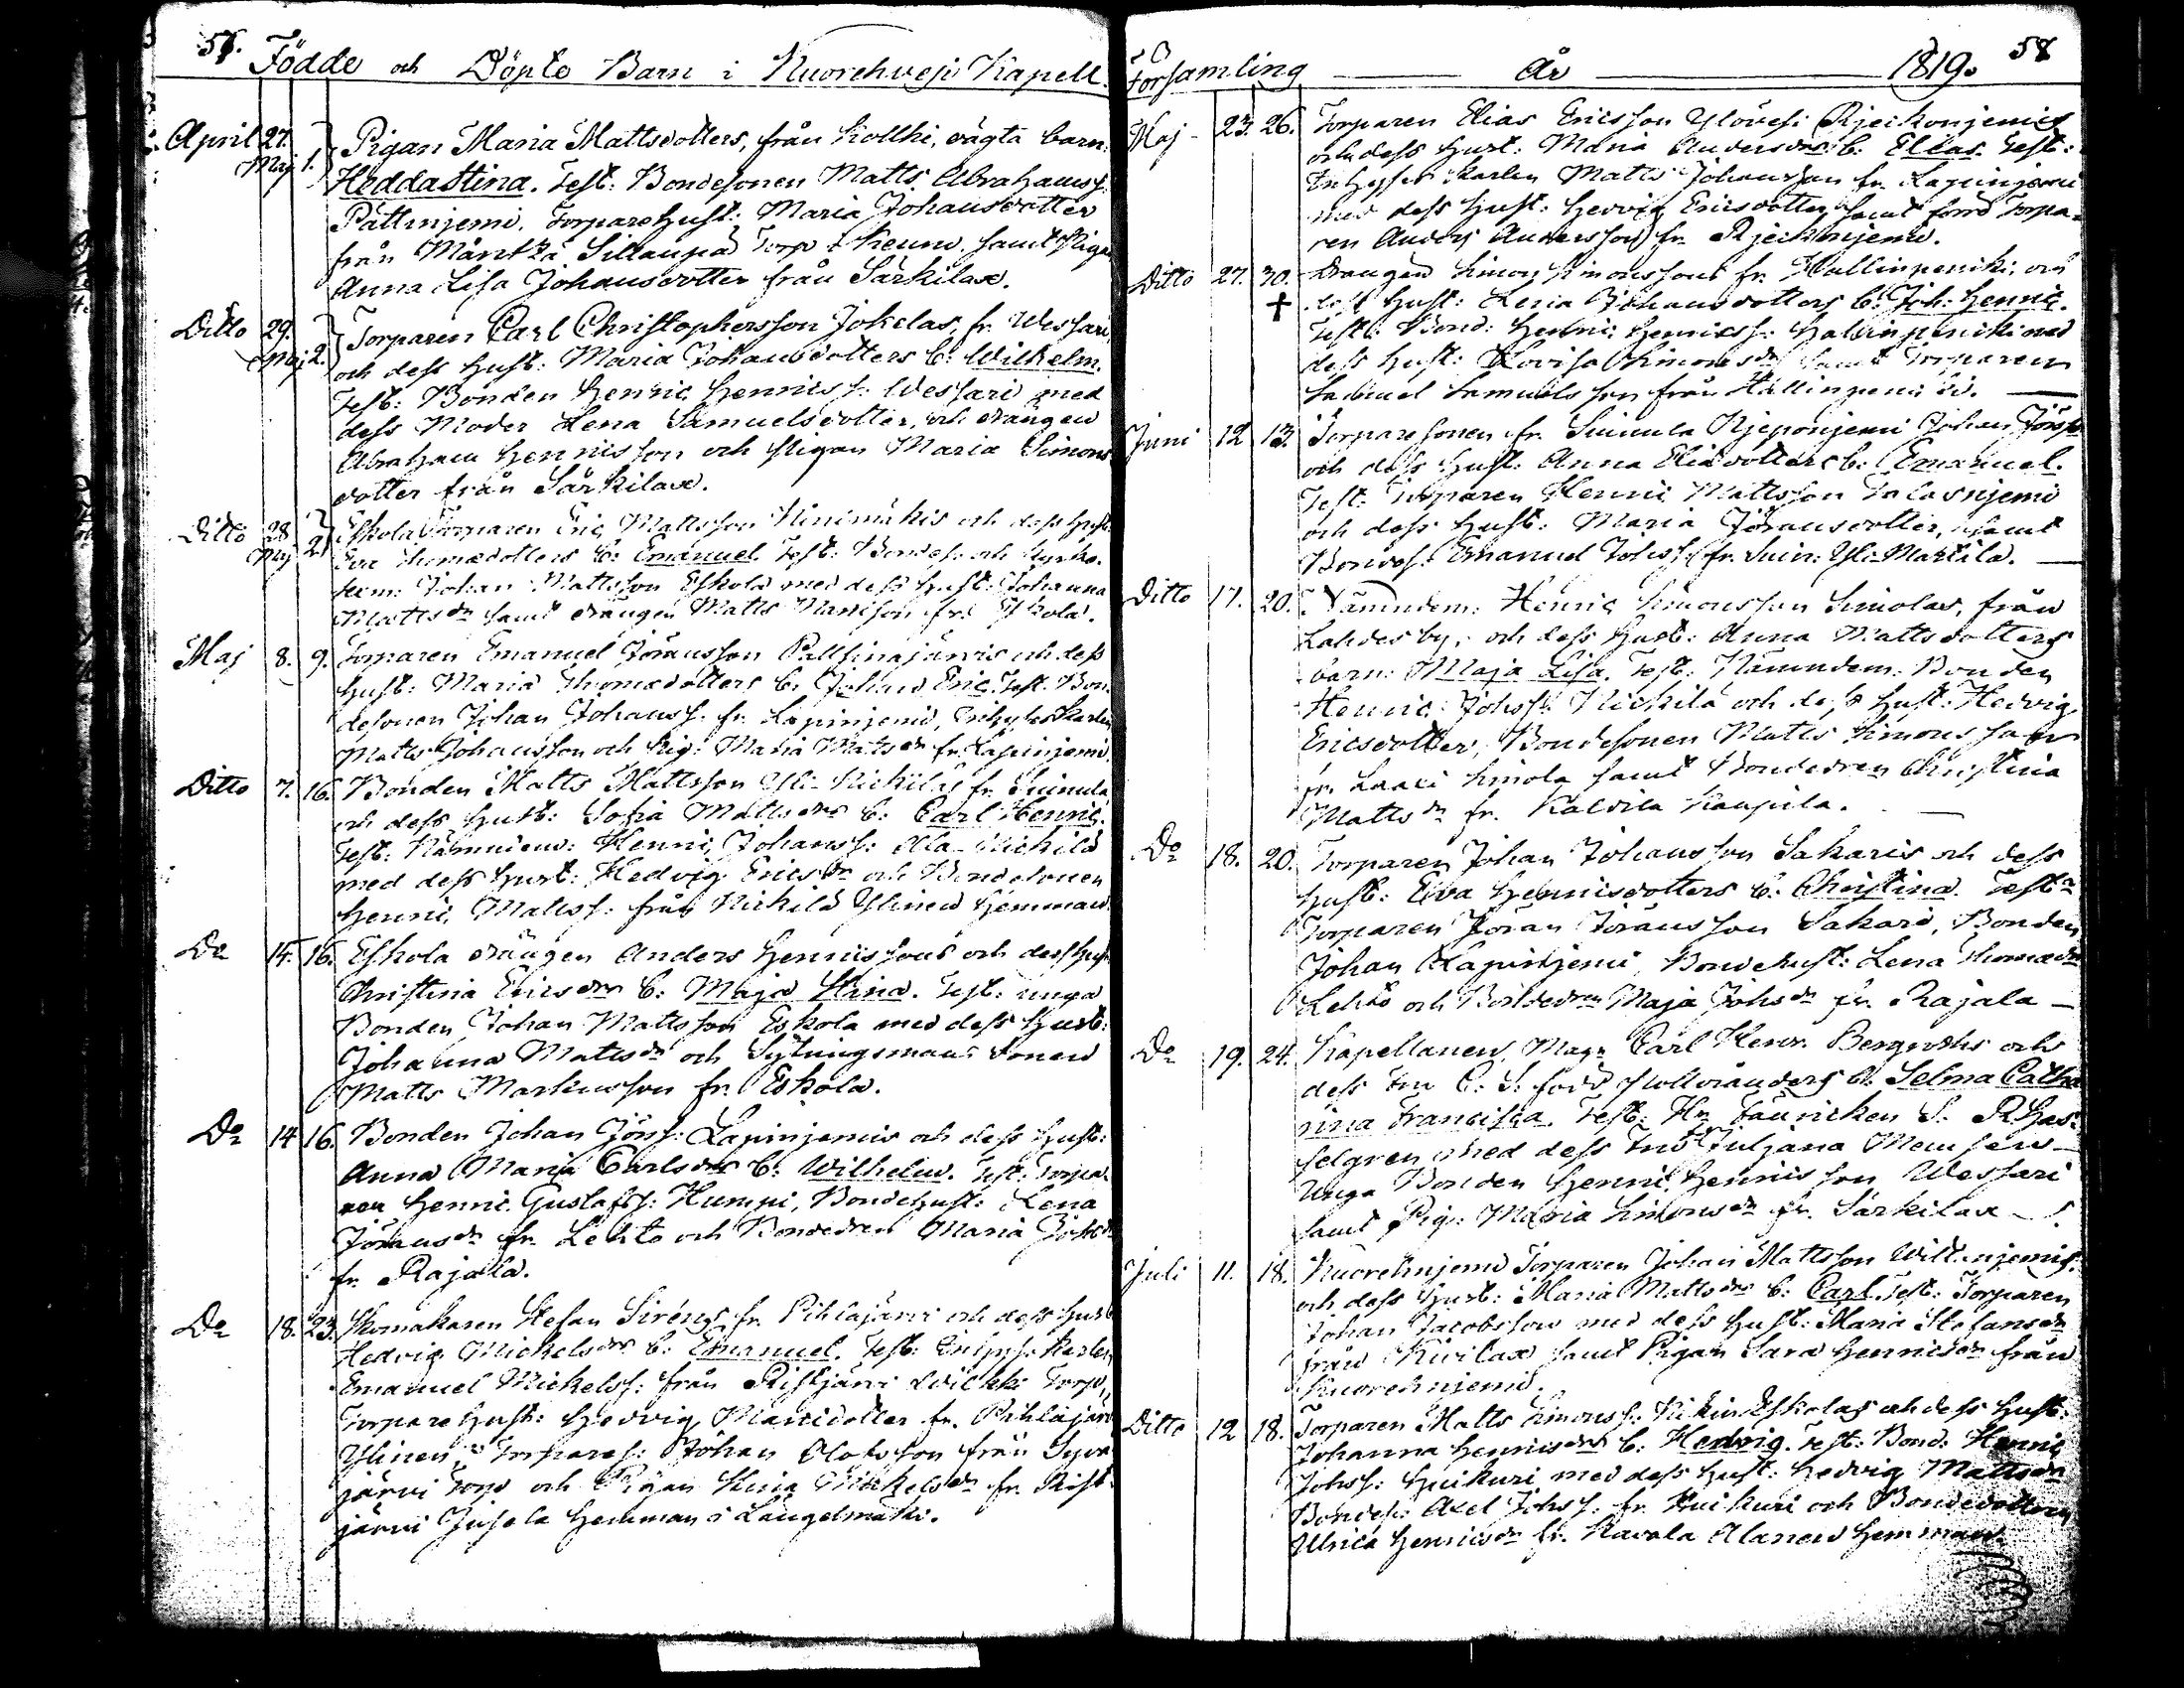 57. Födde och Döpte Barn i Kuorehvesi Kapell
April 27. Maj 1. Pigan Maria Mattsdotters, från Kollki, oägta barn:
Hedda Stina. Test: Bondesonen Matts Abrahamss:
Pättinjemi, Torparehust: Maria Johansdotter
från Mänttä Sillanpää Torp i Keuru, samt Pigan
Anna Lisa Johansdotter från Särkilax.
Ditto 29. Maj 2. Torparen Carl Christophersson Jokelas, fr. Wessari,
och dess Hust: Maria Johansdotters b: Wilhelm.
Test: Bonden Henric Henricss: Wessari med
dess Moder Lena Samuelsdotter, och drängen
Abraham Henricsson och Pigan Maria Simons
dotter från Särkilax.
Ditto 28. Maj 2. Eskola Torparen Eric Mattsson Ninimäkis och dess Hust:
Eva Thomædotters b: Emanuel. Test: Bondes: och Kyrko.
Johan Mattsson Eskola med dess Hust: Johanna
Mattsdr samt drängen Matts fr. Eskola.
Maj 8. 9. Torparen Emanuel Jöransson Pallsinajärvis och dess
Hust: Maria Thomædotters b: Johan Eric. Test: Bon
desonen Johan Johanss: fr. Lapinjemi, Inhyses Karlen
Matts Johansson och Pig: Maria Mattsdr fr. Lapinjemi.
Ditto 7. 16. Bonden Matts Mattsson Yli-Nickiläs fr. Suinula
och dess Hust: Sofia Mattsdrs b: Carl Henric.
Test: Nämndem: Henric Johanss: Ala-Nickilä
med dess Hust: Hedvig Ericsdr och Bondesonen
Henric Mattss: från Nickilä Ylinen Hemman.
Do 14. 16. Eskola drängen Anders Henricssons och dess Hust.
Christina Ericsdrs b: Maja Stina. Test: unga
Bonden Johan Mattsson Eskola med dess Hust:
Johanna Mattsdr och Sytningsmans Sonen
Matts Markusson fr. Eskola.
Do 14 16. Bonden Johan Jöranss: Lapinjemis och dess Hust:
Anna Maria Carlsdrs b: Wilhelm. Test: Torpa
ren Henric Gustafss: Humpi, Bondehust: Lena
Jöransdr fr. Lehto och Bondedren Maria Johsdr
fr. Rajala.
Do 18. 23. Skomakaren Stefan Siréns fr. Pihlajärvi och dess Hust:
Hedvig Mickelsdrs b: Emanuel. Test: Inhyss: Karlen
Emanuel Mickelss: från Ristjärvi Torp,
Torpare Hust: Hedvig dotter fr. Pihlajärvi
Ylinen, Torpares: Johan Olofsson från Syvä
järvi Torp och Pigan Stina Mickelsdr fr. Rist
järvi Jusela Hemman i Längelmäki.
Församling År 1819. 58
Maj 23. 26. Torparen Elias Ericsson Ylövesi
och dess Hust: Maria Andersdrs b: Elias. Test:
Inhyses Karlen Matts Johansson fr. Lapinjemi
med dess Hust: Hedvig Ericsdotter samt förra Torpa
ren Anders Andersson fr.
Ditto 27. 30. † Drängen Simon Simonssons fr. Hallinpenkki, och
dess Hust: Lena Johansdotters b: Joh: Henric.
Test: Bond: Henric Henricss: Hallinpenkki med
dess Hust: Lovisa Simonsdr samt Torparen
Samuel Samuelsson från Hallinpenkki.
Juni 12 13. Torparesonen fr. Suinula Johan Jörss:
och dess Hust: Anna Eliædotters b: Emanuel.
Test: Torparen Henric Mattsson Talasnjemi
och dess Hust: Maria Jöransdotter, samt
Bondes: Emanuel Johss: fr. Suin: Yli-Markila.
Ditto 17. 20. Nämndem: Henric Simonsson Simolas, från
Lahdesby, och dess Hust: Anna Mattsdotters
barn: Maja Lisa. Test: Nämndem: Bonden
Henric Johss: Nickilä och dess Hust: Hedvig
Ericsdotter, Bondesonen Matts Simonsson
fr. Simola samt Bondedren Christina
Mattsdr fr. Kaupila.
Do 18. 20. Torparen Johan Johansson Sakaris och dess
Hust: Eva Henricsdotters b: Christina. Test:
Torparen Jöran Jöransson Sakari, Bonden
Johan Lapinjemi, Bondehust: Lena Thomædr
Lehto och Bondedren Maja Johsdr fr. Rajala
Do 19. 24. Kapellanen, Mag: Carl Henr. Bergroths och
dess Fru C. S. född b: Selma Catha
rina Francisca. Test: Hr Fänricken
selgren med dess Fru Juliana
Unga Bonden Henric Henricsson Wessari
samt Pig: Maria Simonsdr fr. Särkilax
Juli 11. 18. Kuorehnjemi Torparen Johan Mattsson
och dess Hust: Maria Mattsdrs b: Carl. Test: Torparen
Johan Jacobsson med dess Hust: Maria Stefansdr
från Kivilax samt Pigan Sara Henricsdr från
Kuorehnjemi.
Ditto 12 18. Torparen Matts Simonss: Eskolas och dess Hust:
Johanna Henricsdrs b: Hedvig. Test: Bond: Henric
Johss: Huikuri med dess Hust: Hedvig Mattsdr
Bondes: Axel Johss: fr. Huikuri och Bondedottren
Ulrica Henricsdr fr. Kavala Alanen Hemman.